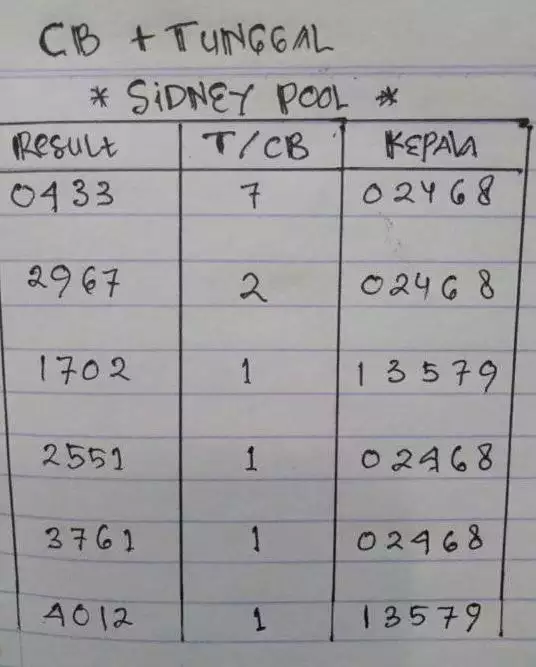 CB + TUNGGAL
* SiDNEY POOL *
RESULT T/CB KEPALA
0433 7 02468
2967 2 02468
1702 1 13579
2551 1 02468
3761 1 02468
4012 1 13579